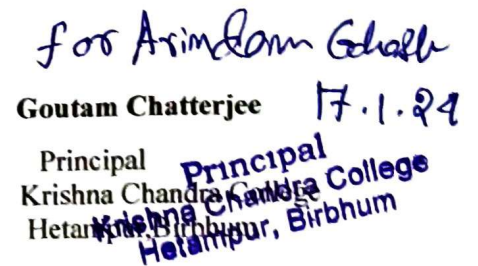 for Arindam Ghosh
Goutam Chatterjee 17.1.24
Principal
Krishna Chandra College
Hetampur, Birbhum
Principal
Krishna Chandra College
Hetampur, Birbhum